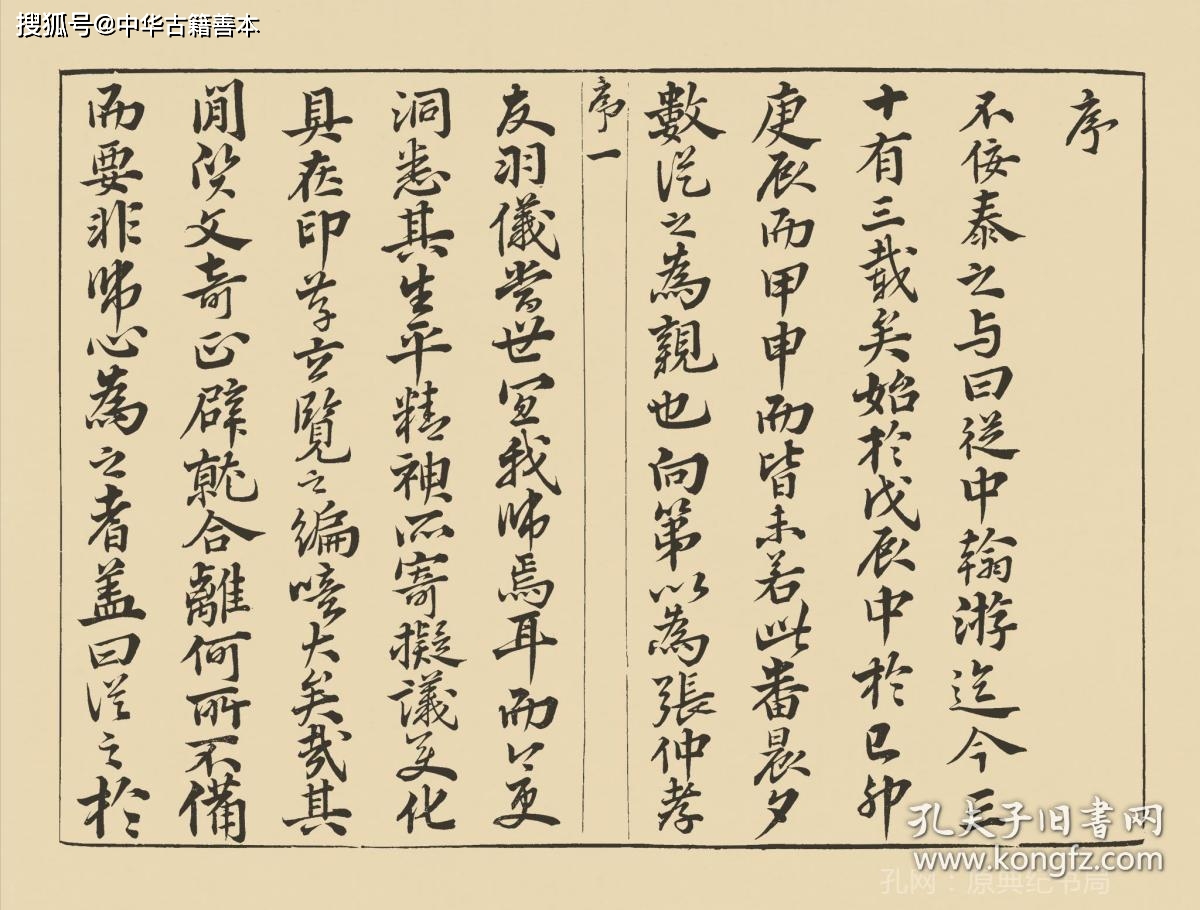 搜狐号@中华古籍善本
序
不佞泰之与曰從中翰游迄今三
十有三載矣始於戊辰中於已卯
庚辰而甲申而皆未若此番晨夕
數従之為親也向第以為張仲孝
序一
友羽儀當世冝我師焉耳而今更
洞悉其生平精神所寄擬議变化
具在印草玄覽之編噫大矣哉其
間質文奇正辟就合離何所不備
而要非師心為之者盖曰従之於
孔夫子旧书网
www.kongfz.com
孔网：原典纪书局